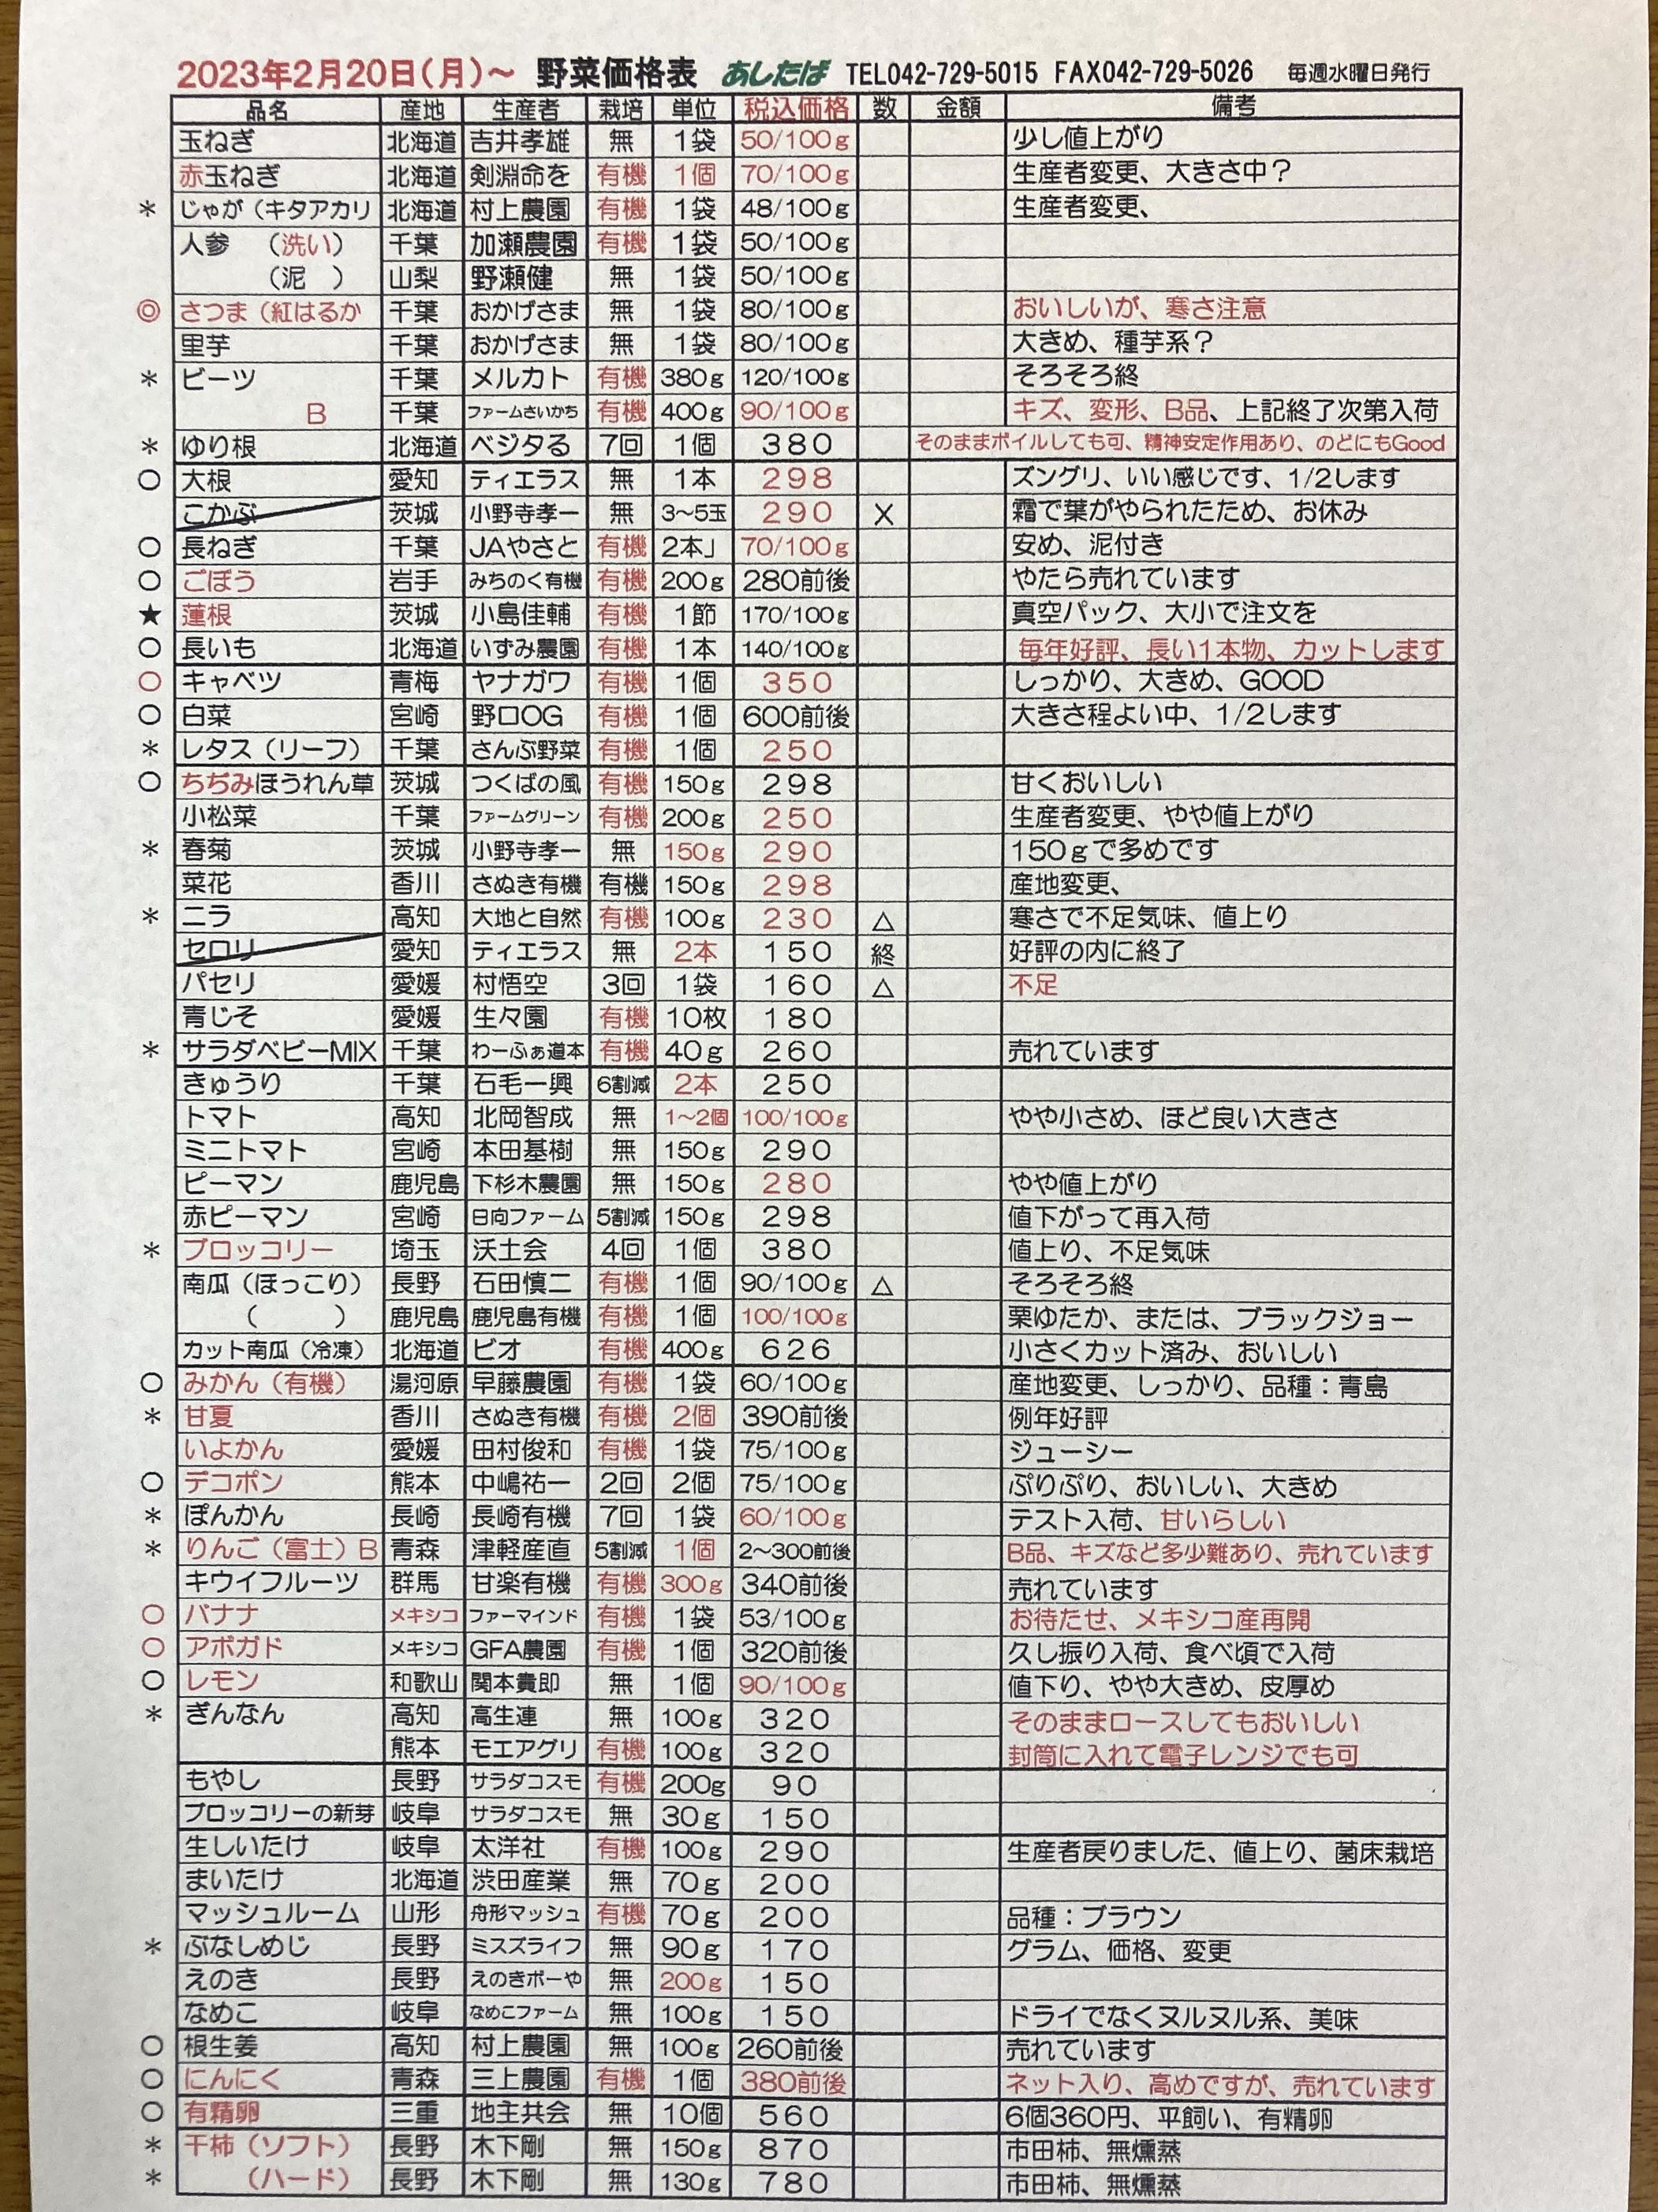 2023年2月20日(月)～ 野菜価格表 あしたば TEL042-729-5015 FAX042-729-5026 毎週水曜日発行
品名 産地 生産者 栽培 単位 税込価格 数 金額 備考
玉ねぎ 北海道 吉井孝雄 無 1袋 50/100g 少し値上がり
赤玉ねぎ 北海道 剣淵命を 有機 1個 70/100g 生産者変更、大きさ中?
＊ じゃが(キタアカリ 北海道 村上農園 有機 1袋 48/100g 生産者変更、
人参 (洗い) 千葉 加瀬農園 有機 1袋 50/100g
(泥 ) 山梨 野瀬健 無 1袋 50/100g
◎ さつま(紅はるか 千葉 おかげさま 無 1袋 80/100g おいしいが、寒さ注意
里芋 千葉 おかげさま 無 1袋 80/100g 大きめ、種芋系?
＊ ビーツ 千葉 メルカト 有機 380g 120/100g そろそろ終
B 千葉 ファームさいかち 有機 400g 90/100g キズ、変形、B品、上記終了次第入荷
＊ ゆり根 北海道 ベジタる 7回 1個 380 そのままボイルしても可、精神安定作用あり、のどにもGood
○ 大根 愛知 ティエラス 無 1本 298 ズングリ、いい感じです、1/2します
こかぶ 茨城 小野寺孝一 無 3～5玉 290 × 霜で葉がやられたため、お休み
○ 長ねぎ 千葉 JAやさと 有機 2本」 70/100g 安め、泥付き
○ ごぼう 岩手 みちのく有機 有機 200g 280前後 やたら売れています
★ 蓮根 茨城 小島佳輔 有機 1節 170/100g 真空パック、大小で注文を
○ 長いも 北海道 いずみ農園 有機 1本 140/100g 毎年好評、長い1本物、カットします
○ キャベツ 青梅 ヤナガワ 有機 1個 350 しっかり、大きめ、GOOD
○ 白菜 宮崎 野口OG 有機 1個 600前後 大きさ程よい中、1/2します
＊ レタス(リーフ) 千葉 さんぶ野菜 有機 1個 250
○ ちぢみほうれん草 茨城 つくばの風 有機 150g 298 甘くおいしい
小松菜 千葉 ファームグリーン 有機 200g 250 生産者変更、やや値上がり
＊ 春菊 茨城 小野寺孝一 無 150g 290 150gで多めです
菜花 香川 さぬき有機 有機 150g 298 産地変更、
＊ ニラ 高知 大地と自然 有機 100g 230 △ 寒さで不足気味、値上り
セロリ 愛知 ティエラス 無 2本 150 終 好評の内に終了
パセリ 愛媛 村悟空 3回 1袋 160 △ 不足
青じそ 愛媛 生々園 有機 10枚 180
＊ サラダベビーMIX 千葉 わーふぁ道本 有機 40g 260 売れています
きゅうり 千葉 石毛一興 6割減 2本 250
トマト 高知 北岡智成 無 1～2個 100/100g やや小さめ、ほど良い大きさ
ミニトマト 宮崎 本田基樹 無 150g 290
ピーマン 鹿児島 下杉木農園 無 150g 280 やや値上がり
赤ピーマン 宮崎 日向ファーム 5割減 150g 298 値下がって再入荷
＊ ブロッコリー 埼玉 沃土会 4回 1個 380 値上り、不足気味
南瓜(ほっこり) 長野 石田慎二 有機 1個 90/100g △ そろそろ終
( ) 鹿児島 鹿児島有機 有機 1個 100/100g 栗ゆたか、または、ブラックジョー
カット南瓜(冷凍) 北海道 ビオ 有機 400g 626 小さくカット済み、おいしい
○ みかん(有機) 湯河原 早藤農園 有機 1袋 60/100g 産地変更、しっかり、品種:青島
＊ 甘夏 香川 さぬき有機 有機 2個 390前後 例年好評
いよかん 愛媛 田村俊和 有機 1袋 75/100g ジューシー
○ デコポン 熊本 中嶋祐一 2回 2個 75/100g ぷりぷり、おいしい、大きめ
＊ ぽんかん 長崎 長崎有機 7回 1袋 60/100g テスト入荷、甘いらしい
＊ りんご(富士)B 青森 津軽産直 5割減 1個 2～300前後 B品、キズなど多少難あり、売れています
キウイフルーツ 群馬 甘楽有機 有機 300g 340前後 売れています
○ バナナ メキシコ ファーマインド 有機 1袋 53/100g お待たせ、メキシコ産再開
○ アボガド メキシコ GFA農園 有機 1個 320前後 久し振り入荷、食べ頃で入荷
○ レモン 和歌山 関本貴即 無 1個 90/100g 値下り、やや大きめ、皮厚め
＊ ぎんなん 高知 高生連 無 100g 320 そのままロースしてもおいしい
熊本 モエアグリ 有機 100g 320 封筒に入れて電子レンジでも可
もやし 長野 サラダコスモ 有機 200g 90
ブロッコリーの新芽 岐阜 サラダコスモ 無 30g 150
生しいたけ 岐阜 太洋社 有機 100g 290 生産者戻りました、値上り、菌床栽培
まいたけ 北海道 渋田産業 無 70g 200
マッシュルーム 山形 舟形マッシュ 有機 70g 200 品種:ブラウン
＊ ぶなしめじ 長野 ミスズライフ 無 90g 170 グラム、価格、変更
えのき 長野 えのきボーや 無 200g 150
なめこ 岐阜 なめこファーム 無 100g 150 ドライでなくヌルヌル系、美味
○ 根生姜 高知 村上農園 無 100g 260前後 売れています
○ にんにく 青森 三上農園 有機 1個 380前後 ネット入り、高めですが、売れています
○ 有精卵 三重 地主共会 無 10個 560 6個360円、平飼い、有精卵
＊ 干柿(ソフト) 長野 木下剛 無 150g 870 市田柿、無燻蒸
＊ (ハード) 長野 木下剛 無 130g 780 市田柿、無燻蒸